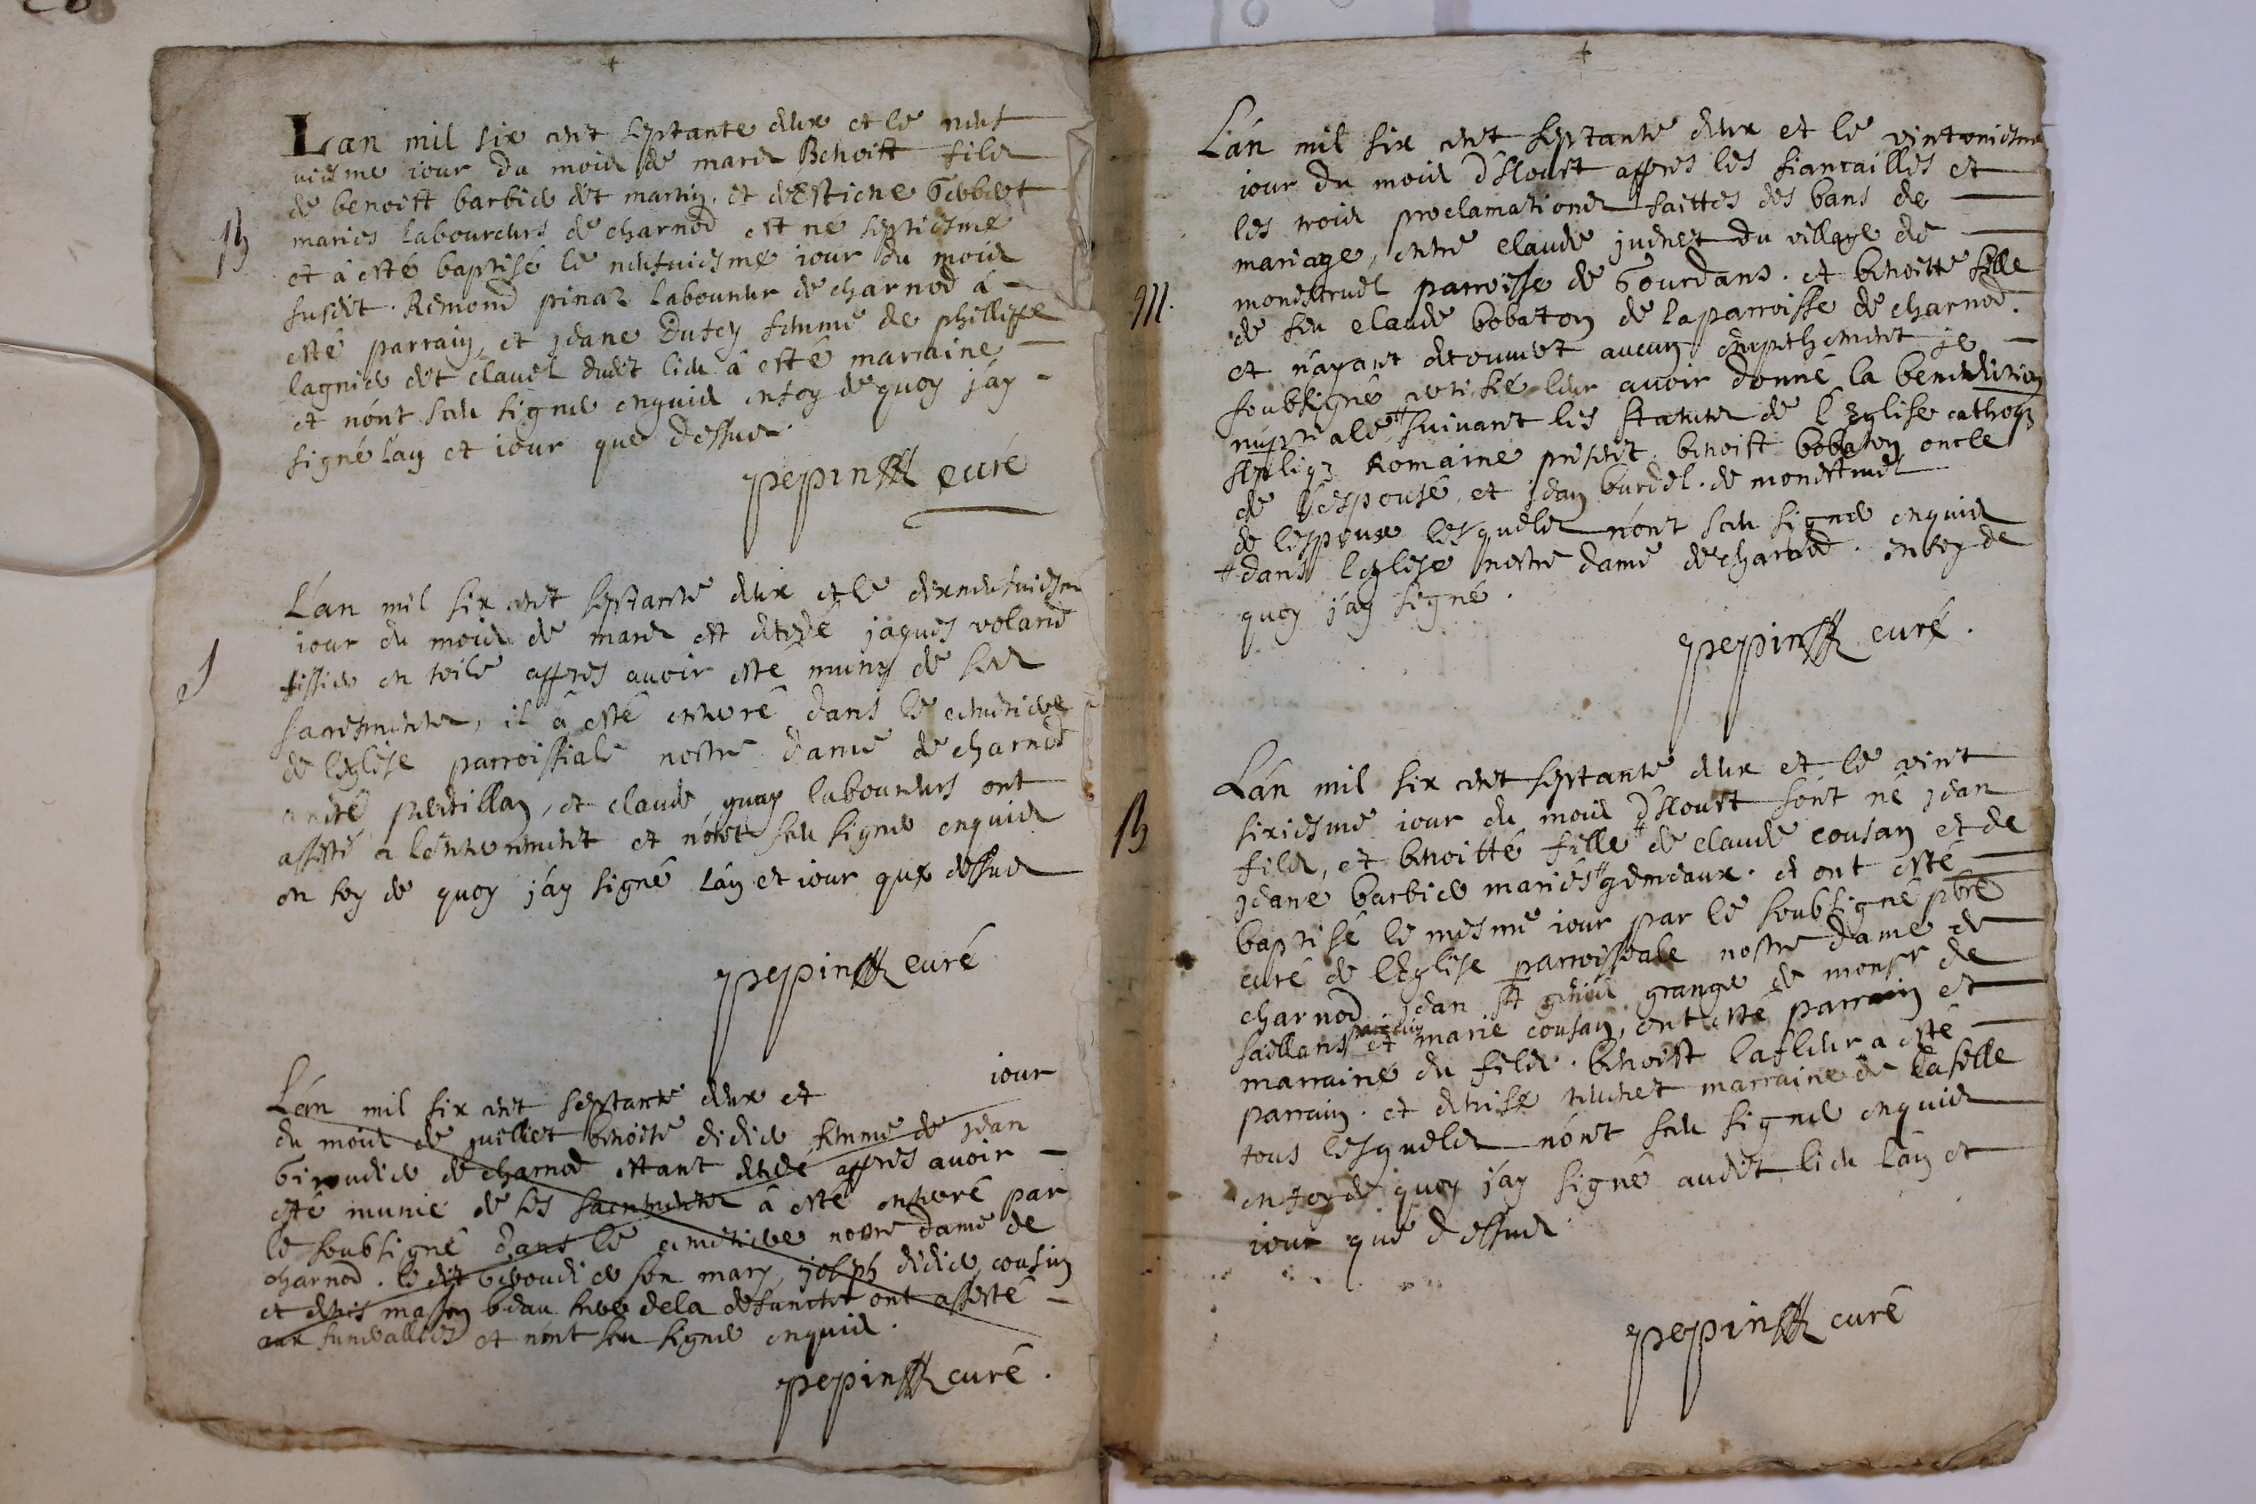 Lan mil six cent septante deux et le neuf
uiesme iour du mois de mars Benoist fils
B
de benoist barbier dit martin, et d'Estiene Gerbert
maries laboureurs de charnod est né septiesme
et à esté baptisé le neufuiesme iour du mois
susdit. Remond pinaz laboureur de charnod à
esté parrain, et jeane Dutey femme de phillipe
lagnier dit clauel dudit lieu à esté marraine
et n'ont sceu signer enquis en foy de quoy j'ay
signé lan et iour que dessus.
pepin curé
L'an mil six cent septante deux et le dixneufuiesme
iour du mois de mars est decedé jaques voland
S
tissier en toile appres auoir esté muny de ses
sacrements, il à esté enterré dans le cemetiere
de leglise parroissiale nostre dame de charnod
André perdrillan, et claude guay laboureurs ont
assisté a lenterrement et n'ont sceu signer enquis
en foy de quoy j'ay signé l'an et iour que dessus
pepin curé
L'an mil six cent septante deux et iour
du mois de juillet benoite didier femme de jean
Giroudier de charnod estant decedé appres auoir
esté munie de ses sacrements à esté enterré par
le soubsigné dans le cemetiere nostre dame de
charnod. le dit Giroudier son mary, joseph didier, cousin
et denis masson beau frere dela defuncte ont assisté
aux funerallies et n'ont sceu signer enquis.
pepin curé.
L'an mil six cent septante deux et le vintoniesme
iour du mois d'Aoust appres les fiancailles et
les trois proclamations faittes des bans de
mariage, entre claude judnet du village de
M.
monestruel parroisse de Gourdans. et benoitte fille
de feu claude bobaton de la parroisse de charnod.
et n'ayant decouuert aucun empechement je
soubsigné certifié leur auoir donné la benediction
nuptiale suiuant les statuts de l'Eglise cathoq
Apliq Romaine present benoist bobaton oncle
de l'espouse, et jean burdel de monestruel
de lespoux lesquels n'ont sceu signer enquis
dans leglise nostre dame de charnod. en foy de
quoy j'ay signé.
pepin curé.
L'an mil six cent septante deux et le vint
sixiesme iour du mois d'Aoust sont né jean
B
fils, et benoitte fille de claude cousan et de
jeane barbier mariés gemeaux. et ont esté
baptisé le mesme iour par le soubsigné pbre
curé de l'Eglise parroissiale nostre dame de
charnod jean granger de monsr de
saillans parrain et marie cousan, ont esté parrain et
marraine du fils. benoist lafleur a esté
parrain. et denise marraine de la fille
tous lesquels n'ont sceu signer enquis
en foy de quoy j'ay signé audit lieu l'an et
iour que dessus.
pepin curé